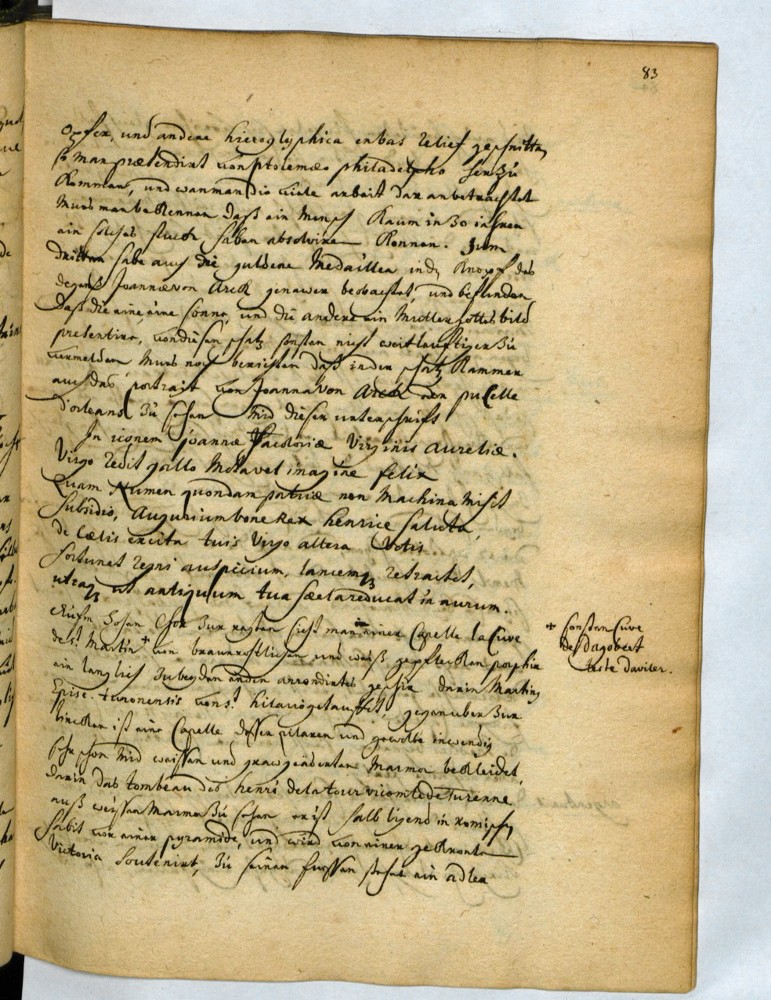 83
Opfer, und andere hieroglyphica en bas relief geschnitten,
so man praetendirt von ptolemaeo philadelpho her zu
kommen, und wan man die viele arbeit dar an betrachtet
mus man bekennen daß ein mensch kaum in 30 jahren
ein solches stuck haben absolviren konnen. Zum
dritten habe auch die guldene Medaillen in dem knopf des
degens Joannae von Arck genawer beobachtet, und befunden
daß die eine eine sonne, und die andere ein Mutter gottes bild
presentire, von diesem schatz sonsten nicht weitlauftiger zu
vermelden mus noch berichten daß in der schatz kammer
auch das portrait von Joanna von Arck den pucelle
d'orleans zu sehen mid dieser unterschrift
In iconem Joannae Virginis Aureliae.
Virgo redit gallo Motavet imagine felix
Quam Numen quondam patriae non Machina misit
Subsidio, Augurium bone Rex henrice saluta,
de Caelis excita tuis Virgo altera Votis
fortunet regni auspicium, lancemq3 retractet,
utraq3 ut antiquum tua saecla reducat in aurum.
hohen Chor zur rechten sieht man in einer Capelle la Cuve
de st. Martin + von braunrothlichen und weiß gefleckten porphir
ein langlich zu beyden enden arrondirtes geschir darin Martin9
Episc. turonensis von st. hilario getauffet, gegenuber zur
lincken ist eine Capelle dessen pilaren und gewolbe inwendig
sehr schon mid weissen und graw geaderten Marmor bekleidet,
darin das tombeau des henri de la tour vicomte de Turenne
auß weissen Marmor zu sehen er ist halb ligend in romischen
habit vor einer pyramide, und wird von einer gekronten
Victoria soutenirt, zu seinen fussen stehet ein adler
+ Cuve
de Dagobert
teste Daviler.